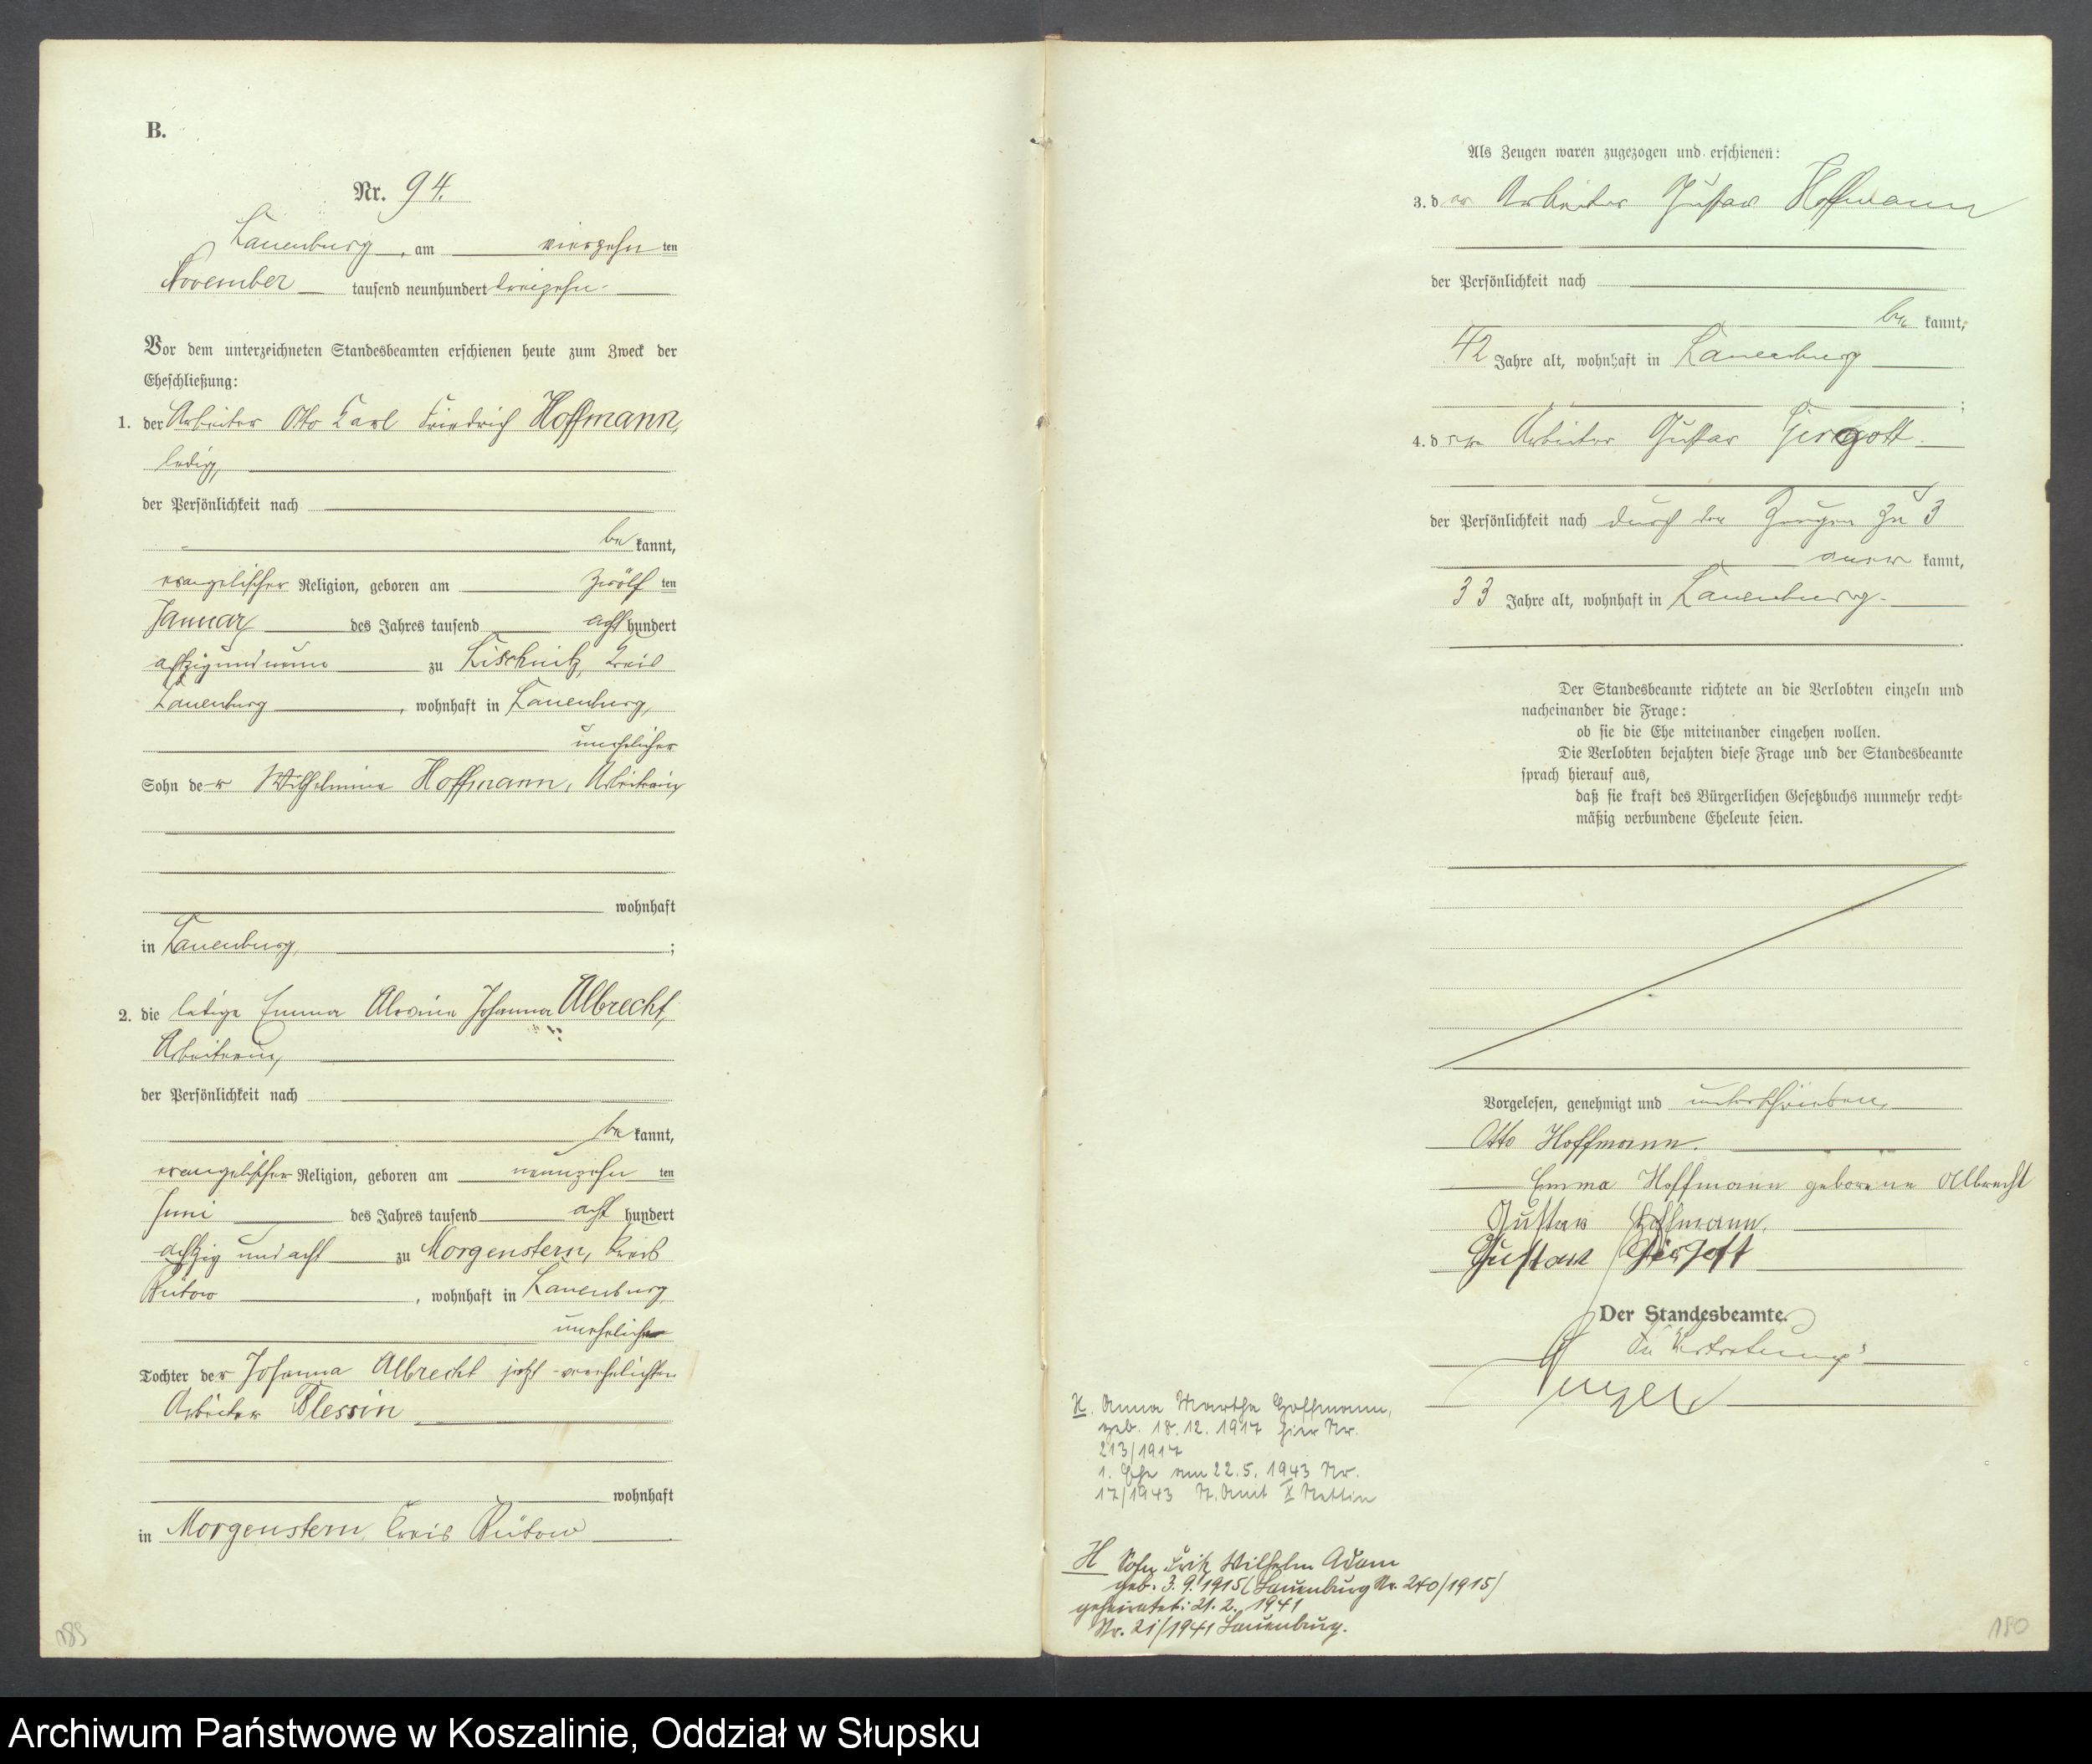 B.
Nr. 94.
Lauenburg, am vierzehn ten
November tausend neunhundert dreizehn.
Vor dem unterzeichneten Standesbeamten erschienen heute zum Zweck der
Eheschließung:
1. der Arbeiter Otto Karl Friedrich Hoffmann,
ledig,
der Persönlichkeit nach
be kannt,
evangelischer Religion, geboren am zwölf ten
Januar des Jahres tausend acht hundert
achtzig und neun zu Lischnitz, Kreis
Lauenburg, wohnhaft in Lauenburg,
unehelicher
Sohn der Wilhelmine Hoffmann, Arbeiterin,
wohnhaft
in Lauenburg, ;
2. die ledige Emma Alwine Johanna Albrecht,
Arbeiterin,
der Persönlichkeit nach
be kannt,
evangelischer Religion, geboren am neunzehn ten
Juni des Jahres tausend acht hundert
achtzig und acht zu Morgenstern, Kreis
Bütow, wohnhaft in Lauenburg,
uneheliche
Tochter der Johanna Albrecht jetzt verehelichten
Arbeiter Blessin
wohnhaft
in Morgenstern, Kreis Bütow
189
Als Zeugen waren zugezogen und erschienen:
3. der Arbeiter Gustav Hoffmann
der Persönlichkeit nach
be kannt,
42 Jahre alt, wohnhaft in Lauenburg
;
4. der Arbeiter Gustav
der Persönlichkeit nach durch den Zeugen zu 3
aner kannt,
33 Jahre alt, wohnhaft in Lauenburg.
Der Standesbeamte richtete an die Verlobten einzeln und
nacheinander die Frage:
ob sie die Ehe miteinander eingehen wollen.
Die Verlobten bejahten diese Frage und der Standesbeamte
sprach hierauf aus,
daß sie kraft des Bürgerlichen Gesetzbuchs nunmehr recht-
mäßig verbundene Eheleute seien.
Vorgelesen, genehmigt und unterschrieben,
Otto Hoffmann.
Emma Hoffmann geborene Albrecht
Gustav Hoffmann.
Gustav
Der Standesbeamte.
In Vertretung:
H. Anna Martha Hoffmann,
geb. 18.12.1917 hier Nr.
213/1917
1. Ehe am 22.5.1943 Nr.
17/1943 St. Amt
H Sohn Fritz Wilhelm Adam
geb. 3.9.1915 (Lauenburg Nr. 240/1915)
geheiratet: 21.2.1941
Nr. 21/1941 Lauenburg.
190
Archiwum Państwowe w Koszalinie, Oddział w Słupsku